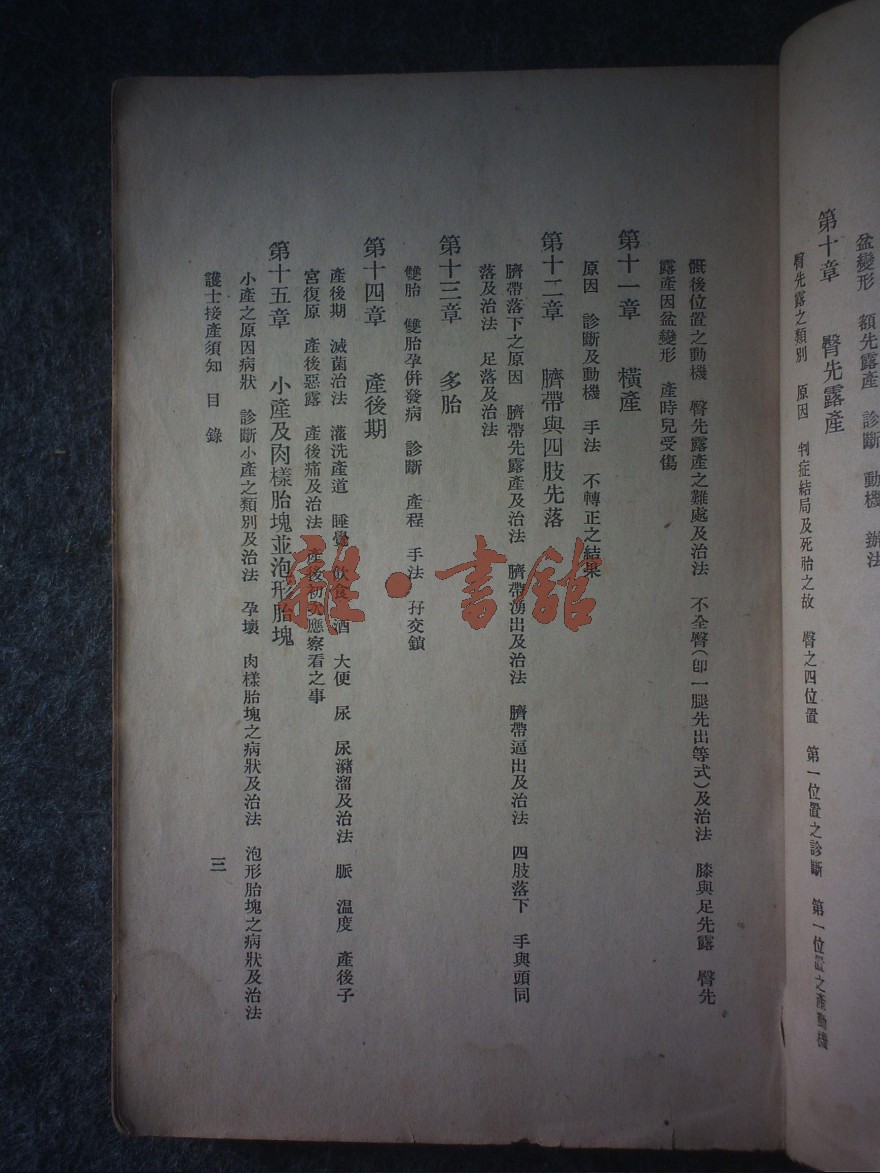 盆變形　額先露產　診斷　動機　辦法
第十章　臀先露產
臀先露之類別　原因　判症結局及死胎之故　臀之四位置　第一位置之診斷　第一位置之產動機
骶後位置之動機　臀先露產之難處及治法　不全臀(卽一腿先出等式)及治法　膝與足先露　臀先
露產因盆變形　產時兒受傷
第十一章　橫產
原因　診斷及動機　手法　不轉正之結果
第十二章　臍帶與四肢先落
臍帶落下之原因　臍帶先露產及治法　臍帶湧出及治法　臍帶逼出及治法　四肢落下　手與頭同
落及治法　足落及治法
第十三章　多胎
雙胎　雙胎孕併發病　診斷　產程　手法　孖交鎖
第十四章　產後期
產後期　滅菌治法　灌洗產道　睡覺　飲食　酒　大便　尿　尿瀦溜及治法　脈　溫度　產後子
宮復原　產後惡露　產後痛及治法　產後初次應察看之事
第十五章　小產及肉樣胎塊並泡形胎塊
小產之原因病狀　診斷小產之類別及治法　孕壞　肉樣胎塊之病狀及治法　泡形胎塊之病狀及治法
護士接產須知　目錄
三
雜·書館